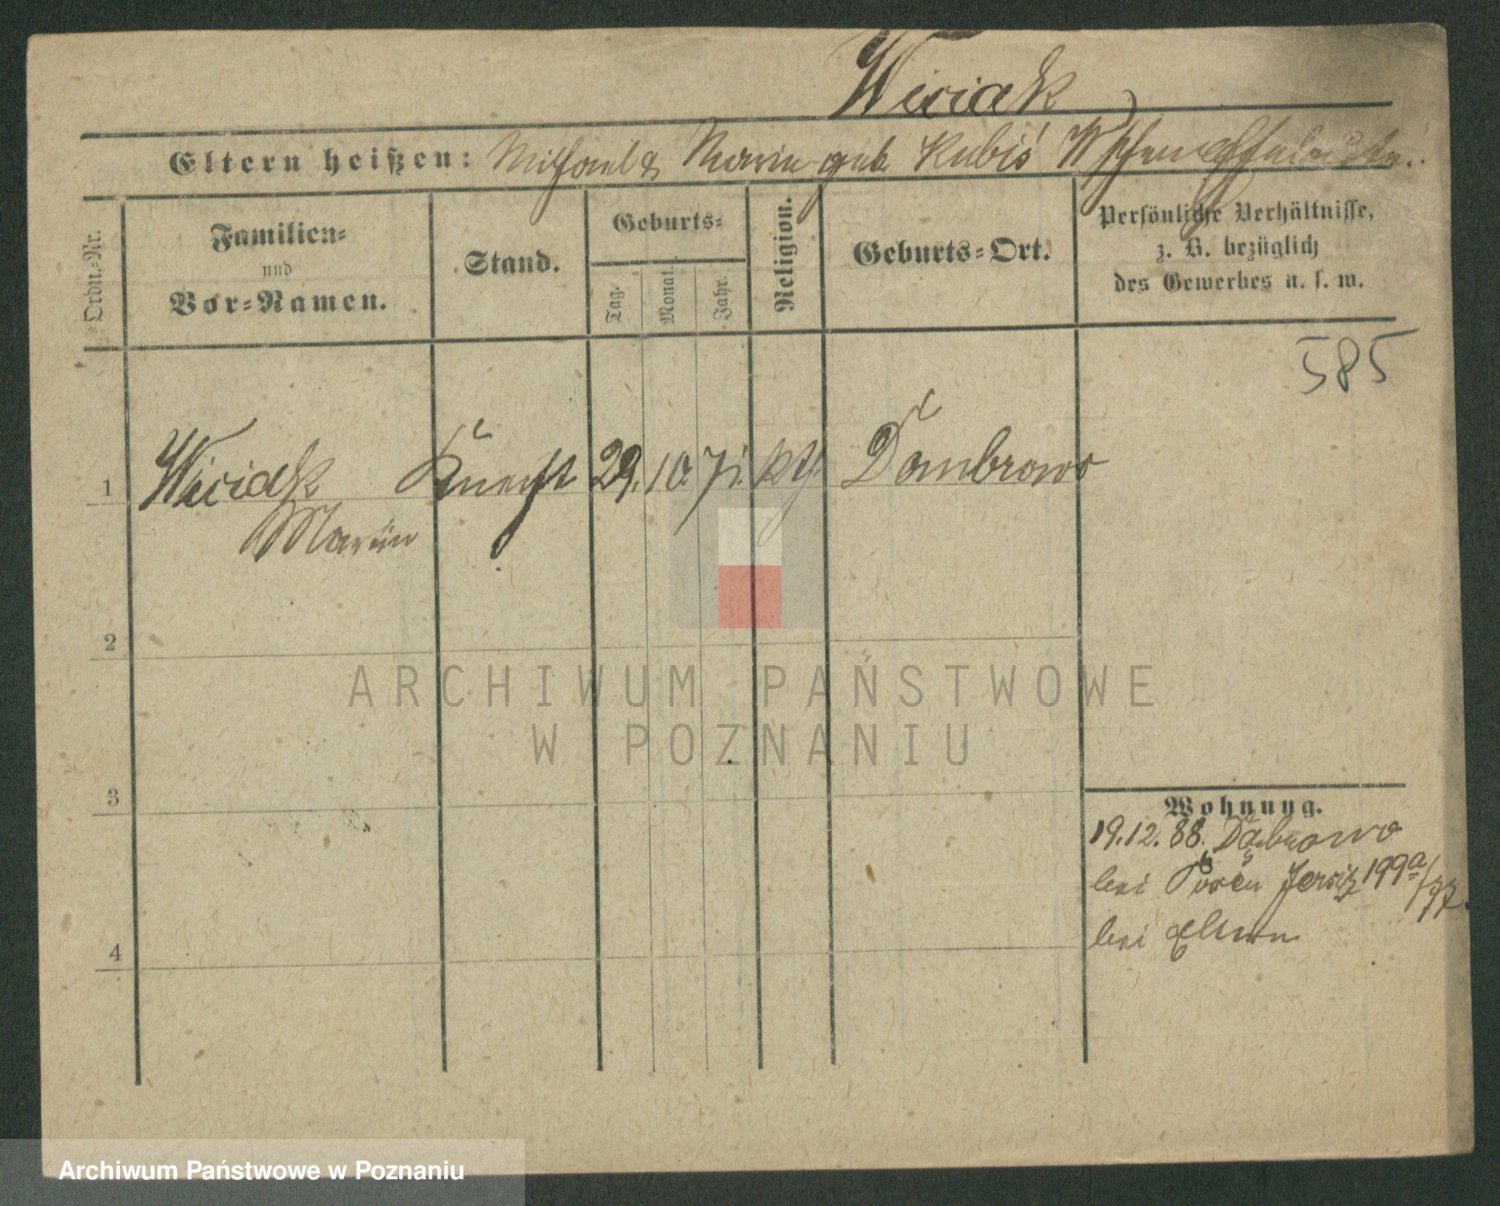 Wiciak
Eltern heißen: Michael & Maria geb. Kubiś
Ordn.-Nr.
Familien-
und
Vor-Namen.
Stand.
Geburts-
Tag.
Monat.
Jahr.
Religion.
Geburts-Ort.
Persönliche Verhältnisse,
z. B. bezüglich
des Gewerbes u. s. w.
585
1 Wiciak Knecht 29. 10. 71. kth. Dombrowo
2
3
4
Wohnung.
19. 12. 88. Dąbrowo
bei Posen Jersitz 199a
bei Eltern
ARCHIWUM PAŃSTWOWE
W POZNANIU
Archiwum Państwowe w Poznaniu